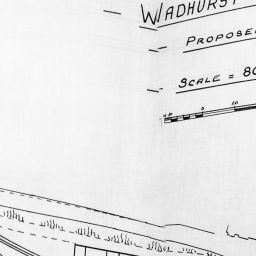 WADHURST
PROPOSED
SCALE = 80
0 50